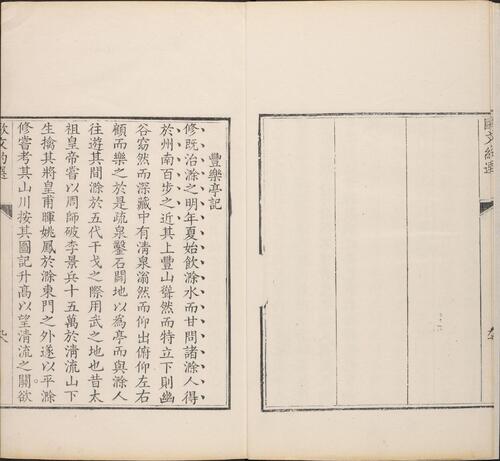 豐樂亭記
修既治滁之明年夏始飲滁水而甘問諸滁人得
於州南百步之近其上豐山聳然而特立下則幽
谷窈然而深藏中有清泉滃然而仰出俯仰左右
顧而樂之於是疏泉鑿石闢地以為亭而與滁人
往遊其間滁於五代干戈之際用武之地也昔太
祖皇帝嘗以周師破李景兵十五萬於清流山下
生擒其將皇甫暉姚鳳於滁東門之外遂以平滁
修嘗考其山川按其圖記升高以望清流之關欲